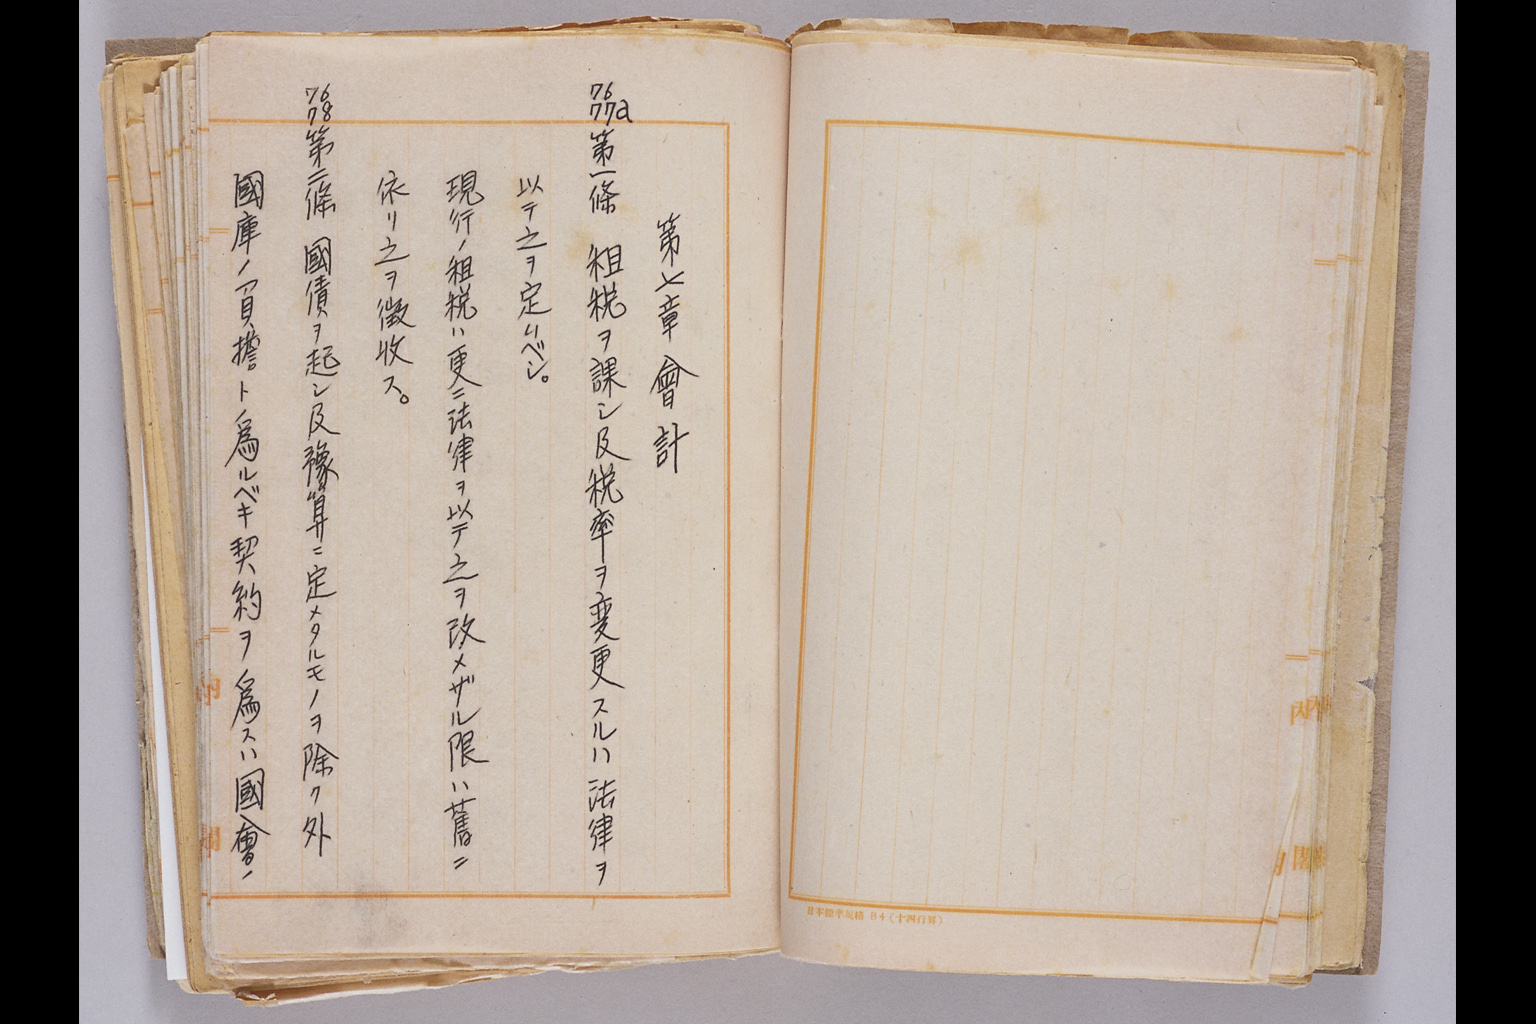 第七章會計
76
77a
第一條 租税ヲ課シ及税率ヲ変更スルハ法律ヲ
以テ之ヲ定ムベシ。
現行ノ租税ハ更ニ法律ヲ以テ之ヲ改メザル限ハ舊ニ
依リ之ヲ徴収ス。
76
78
第二條 國債ヲ起シ及豫算ニ定メタルモノヲ除ク外
國庫ノ負擔トノ爲ルベキ契約ヲノ爲スハ國會ノ
日本標準規格 B4(十四行罫)
内閣